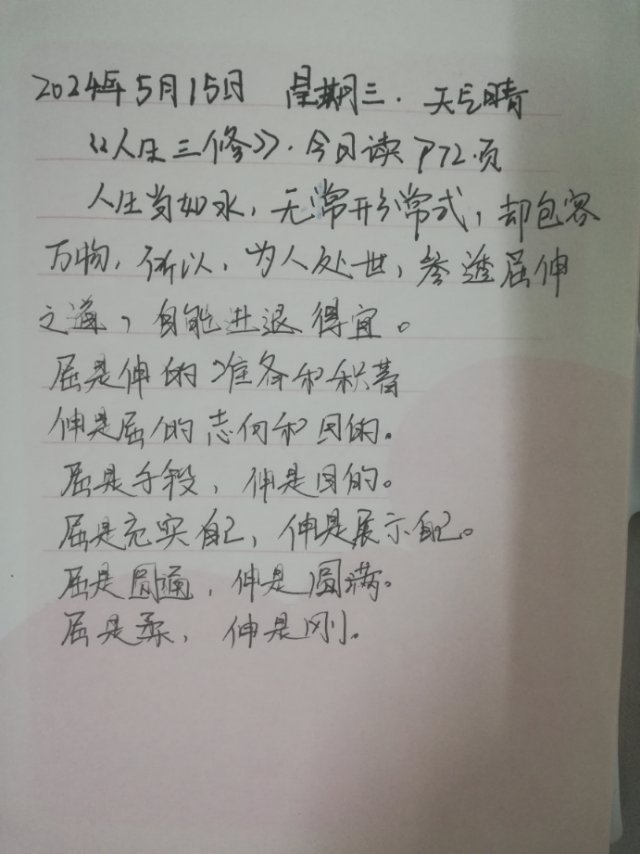 2024年5月15日 星期三. 天气晴
《人生三修》. 今日读P72.页
人生当如水, 无常形常式, 却包容
万物, 所以, 为人处世, 参透屈伸
之道, 自能进退得宜。
屈是伸的准备和积蓄
伸是屈的志向和目的.
屈是手段, 伸是目的。
屈是充实自己, 伸是展示自己。
屈是圆通, 伸是圆满.
屈是柔, 伸是刚.